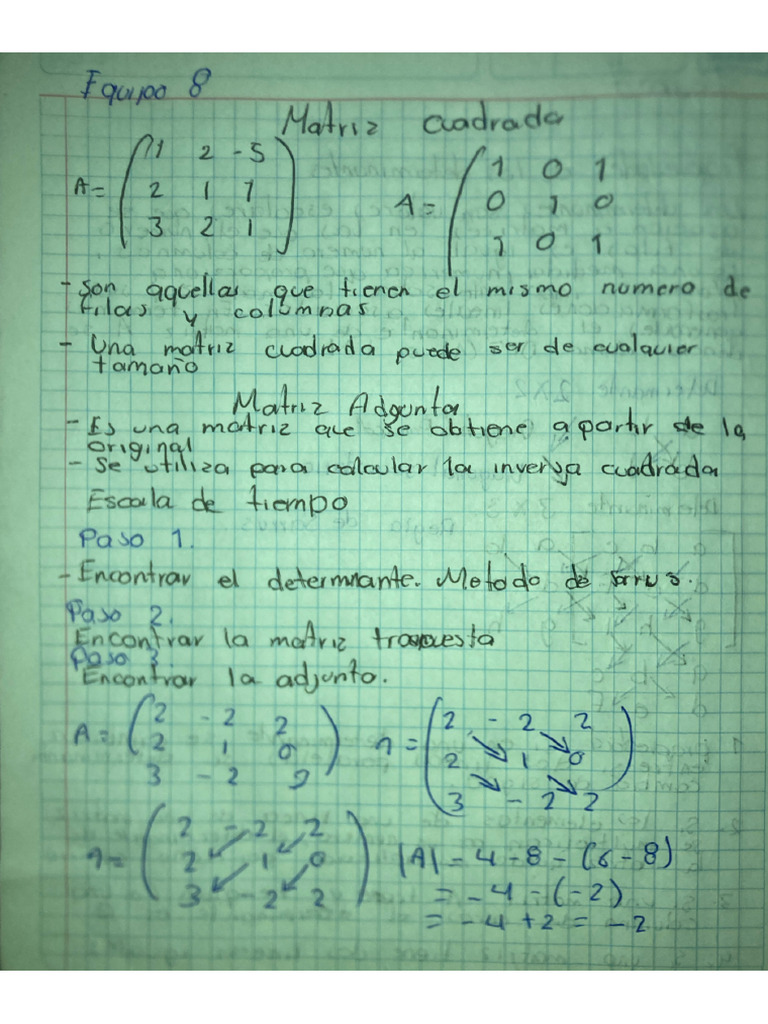 Equipo 8
Matriz Cuadrada
A = ( 1 2 -5
2 1 7
3 2 1 )
A = ( 1 0 1
0 1 0
1 0 1
- Son aquellas que tienen el mismo numero de
filas y columnas
- Una matriz cuadrada puede ser de cualquier
tamaño
Matriz Adgunta
- Es una matriz que se obtiene apartir de la
original
- Se utiliza para calcular la inversa cuadrada
Escala de tiempo
Paso 1.
- Encontrar el determinante. Metodo de
Paso 2.
Encontrar la matriz
Paso 3
Encontrar la adjunto.
A = ( 2 -2 2
2 1 0
3 -2 2 )
A = ( 2 -2 2
2 1 0
3 -2 2 )
A = ( 2 -2 2
2 1 0
3 -2 2 )
|A| = 4 - 8 - (6 - 8)
= -4 - (-2)
= -4 + 2 = -2